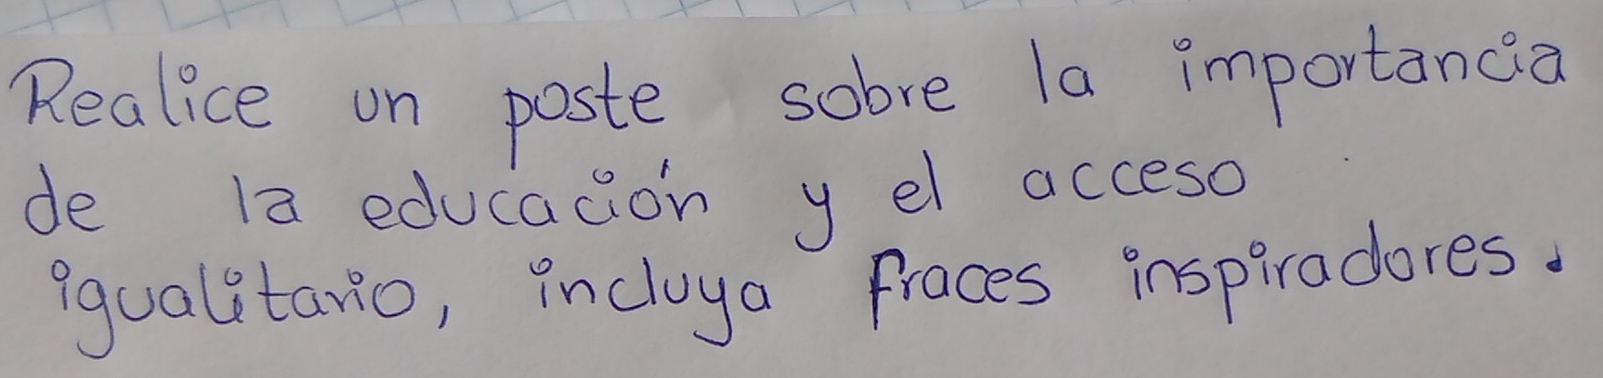 Realice un poste sobre la importancia
de la educación y el acceso
igualitario, incluya fraces inspiradores.